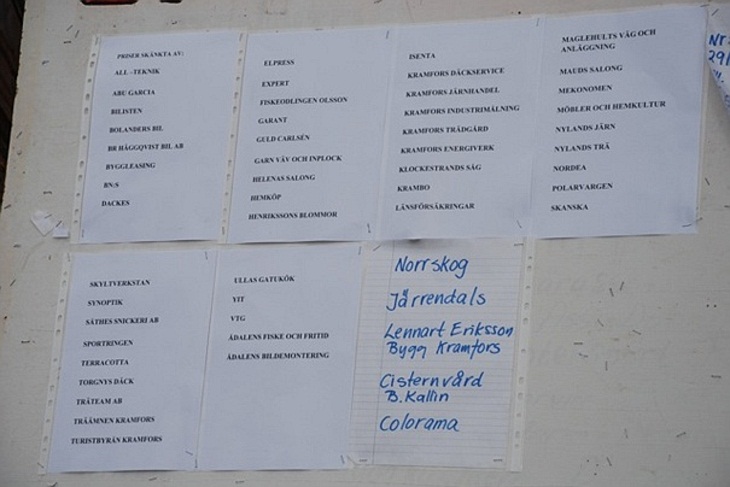 PRISER SKÄNKTA AV:
ALL -TEKNIK
ABU GARCIA
BILISTEN
BOLANDERS BIL
BR HÄGGQVIST BIL AB
BYGGLEASING
BN:S
DACKES
ELPRESS
EXPERT
FISKEODLINGEN OLSSON
GARANT
GULD CARLSÉN
GARN VÄV OCH INPLOCK
HELENAS SALONG
HEMKÖP
HENRIKSSONS BLOMMOR
ISENTA
KRAMFORS DÄCKSERVICE
KRAMFORS JÄRNHANDEL
KRAMFORS INDUSTRIMÅLNING
KRAMFORS TRÄDGÅRD
KRAMFORS ENERGIVERK
KLOCKESTRANDS SÅG
KRAMBO
LÄNSFÖRSÄKRINGAR
MAGLEHULTS VÄG OCH
ANLÄGGNING
MAUDS SALONG
MEKONOMEN
MÖBLER OCH HEMKULTUR
NYLANDS JÄRN
NYLANDS TRÄ
NORDEA
POLARVARGEN
SKANSKA
Nr
29/
SKYLTVERKSTAN
SYNOPTIK
SÄTHES SNICKERI AB
SPORTRINGEN
TERRACOTTA
TORGNYS DÄCK
TRÄTEAM AB
TRÄÄMNEN KRAMFORS
TURISTBYRÅN KRAMFORS
ULLAS GATUKÖK
YIT
VTG
ÅDALENS FISKE OCH FRITID
ÅDALENS BILDEMONTERING
Norrskog
Järrendals
Lennart Eriksson
Bygg Kramfors
Cisternvård
B. Kallin
Colorama